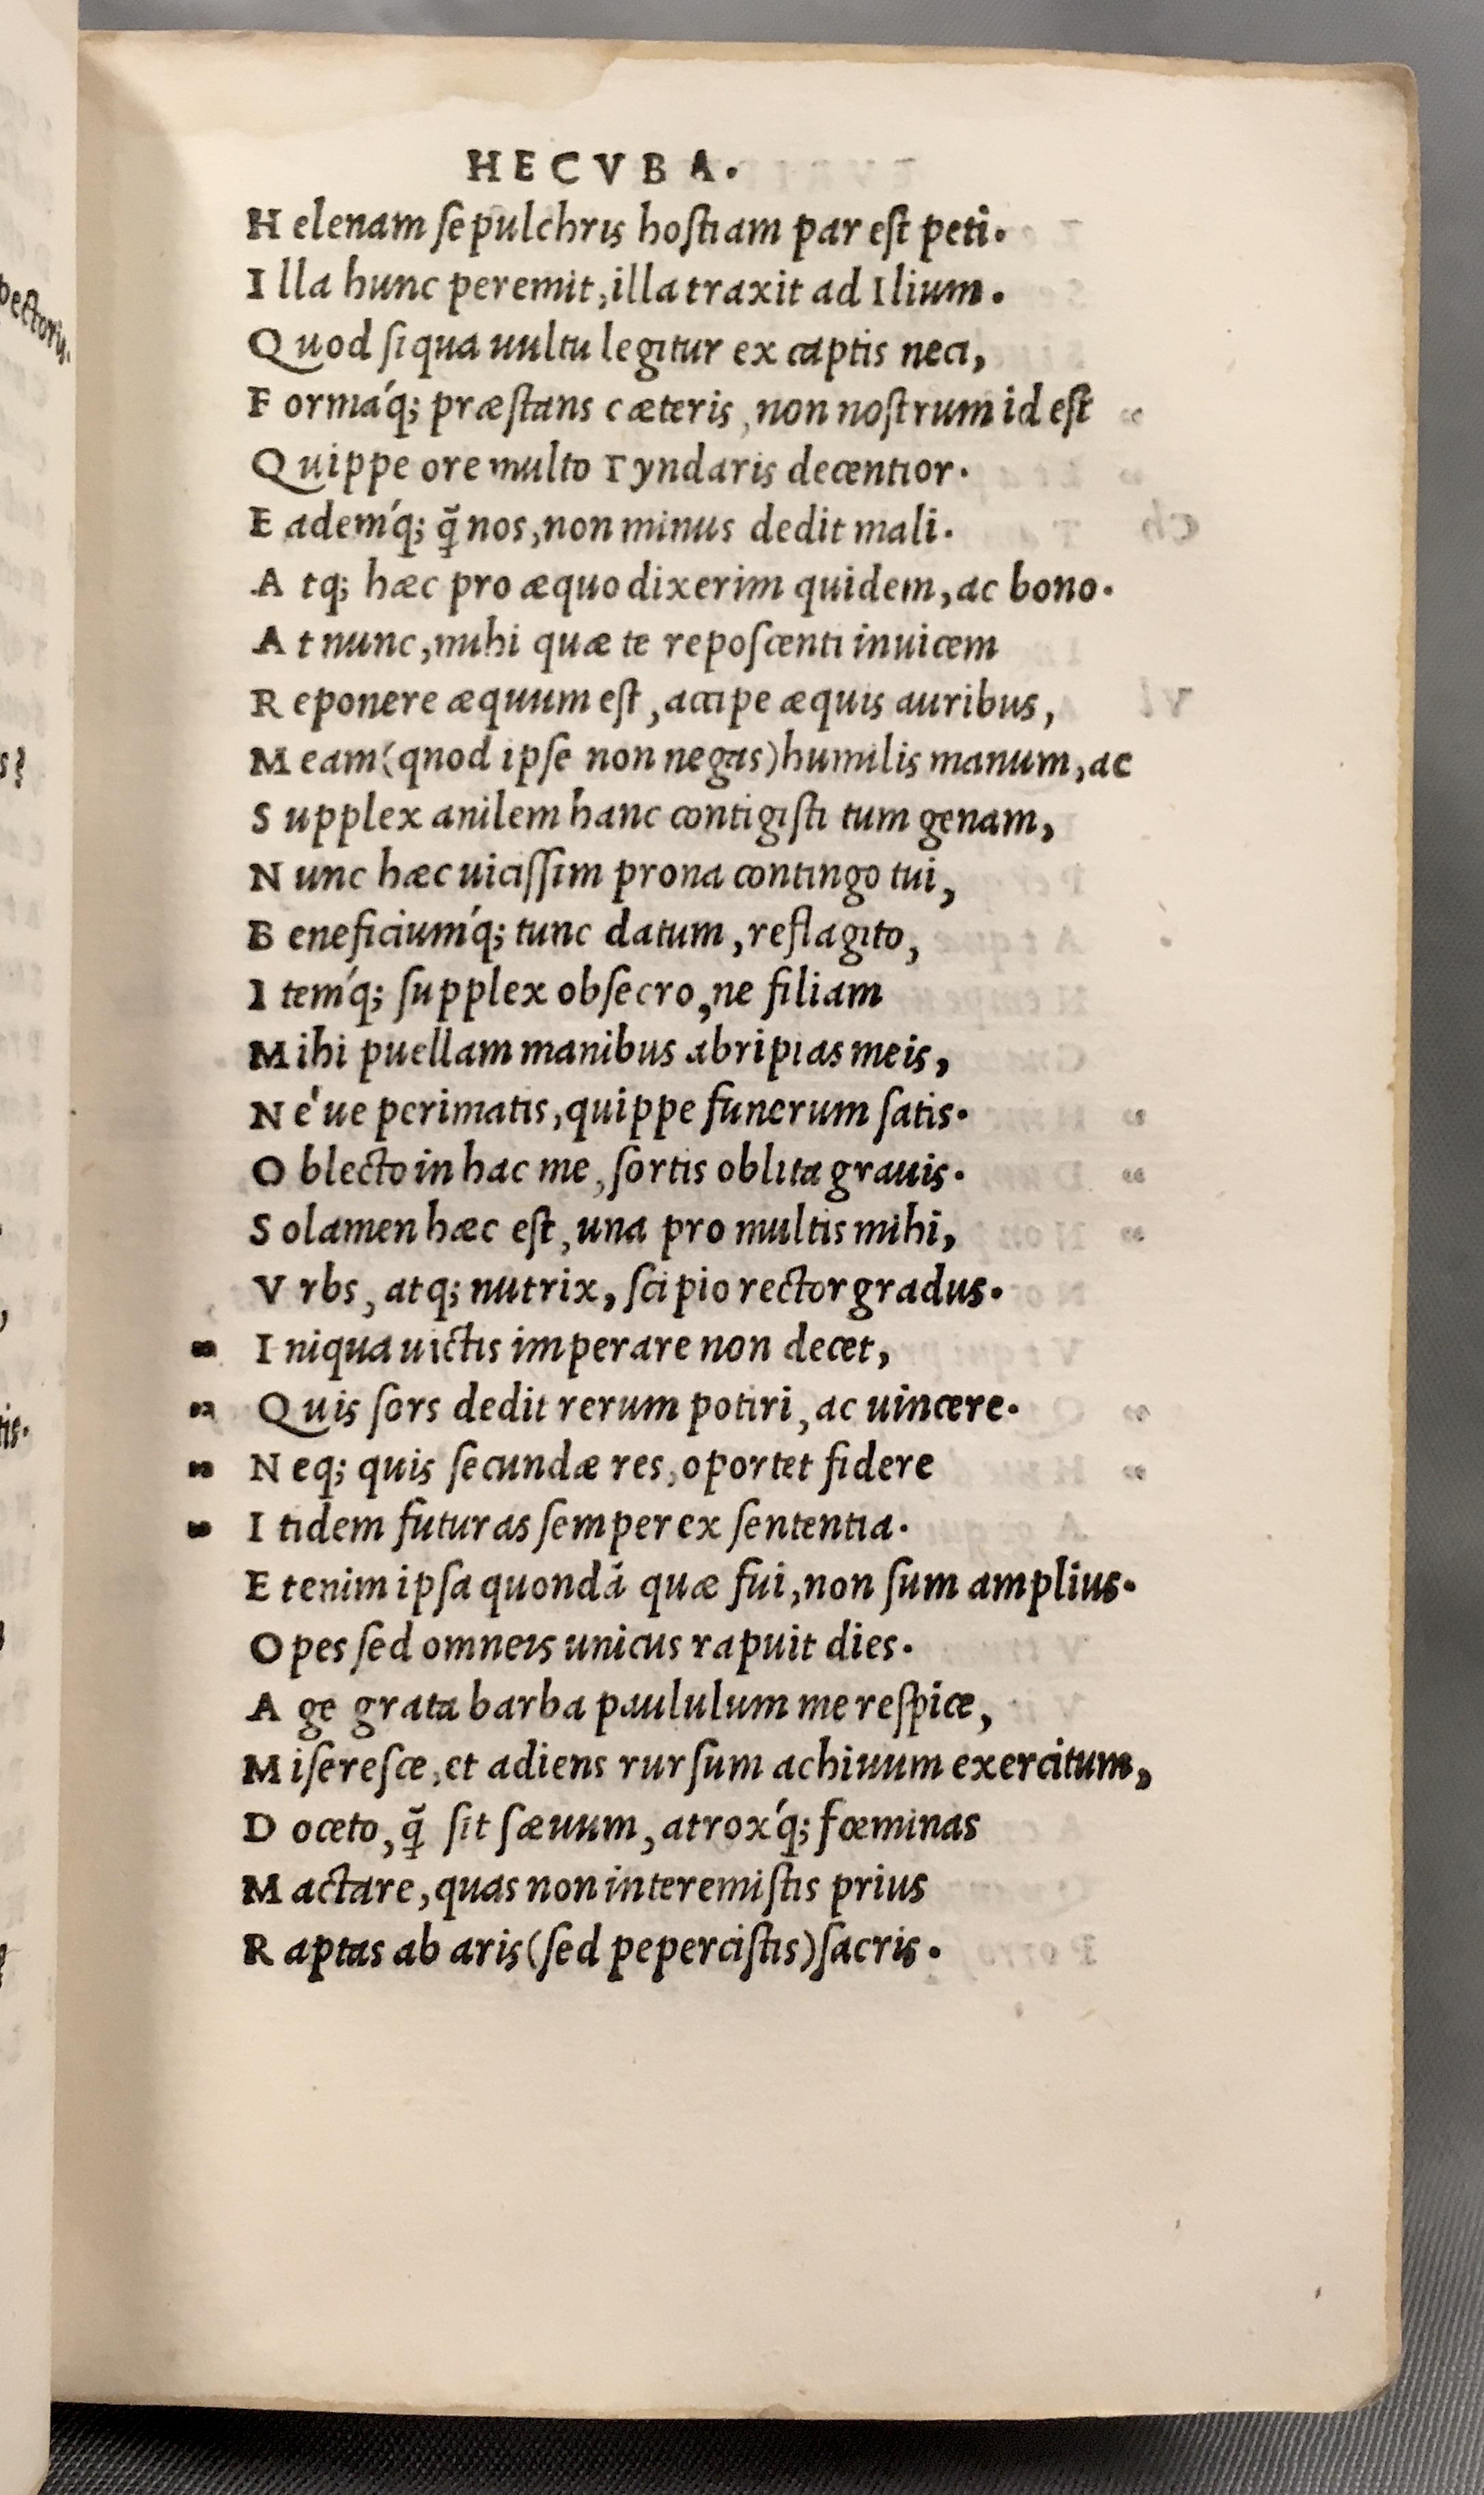 HECVBA.
Helenam ſepulchris hoſtiam par eſt peti.
Illa hunc peremit, illa traxit ad Ilium.
Quod ſi qua uultu legitur ex captis neci,
Formáq; præſtans cæteris, non noſtrum id eſt
Quippe ore multo Tyndaris decentior.
Eadem'q; q̃ nos, non minus dedit mali.
Atq; hæc pro æquo dixerim quidem, ac bono.
At nunc, mihi quæ te repoſcenti inuicem
Reponere æquum eſt, accipe æquis auribus,
Meam (qnod ipſe non negas) humilis manum, ac
Supplex anilem hanc contigiſti tum genam,
Nunc hæc uiciſſim prona contingo tui,
Beneficium'q; tunc datum, reflagito,
Item'q; ſupplex obſecro, ne filiam
Mihi puellam manibus abripias meis,
Né ue perimatis, quippe funerum ſatis.
Oblecto in hac me, ſortis oblita grauis.
Solamen hæc eſt, una pro multis mihi,
Vrbs, atq; nutrix, ſcipio rector gradus.
„ Iniqua uictis imperare non decet,
„ Quis ſors dedit rerum potiri, ac uincere.
„ Neq; quis ſecundæ res, oportet fidere
„ Itidem futuras ſemper ex ſententia.
Etenim ipſa quondã quæ fui, non ſum amplius.
Opes ſed omneis unicus rapuit dies.
Age grata barba paululum me reſpice,
Miſereſce, et adiens rurſum achiuum exercitum,
Doceto, q̃ ſit ſæuum, atrox'q; fœminas
Mactare, quas non interemiſtis prius
Raptas ab aris (ſed peperciſtis) ſacris.